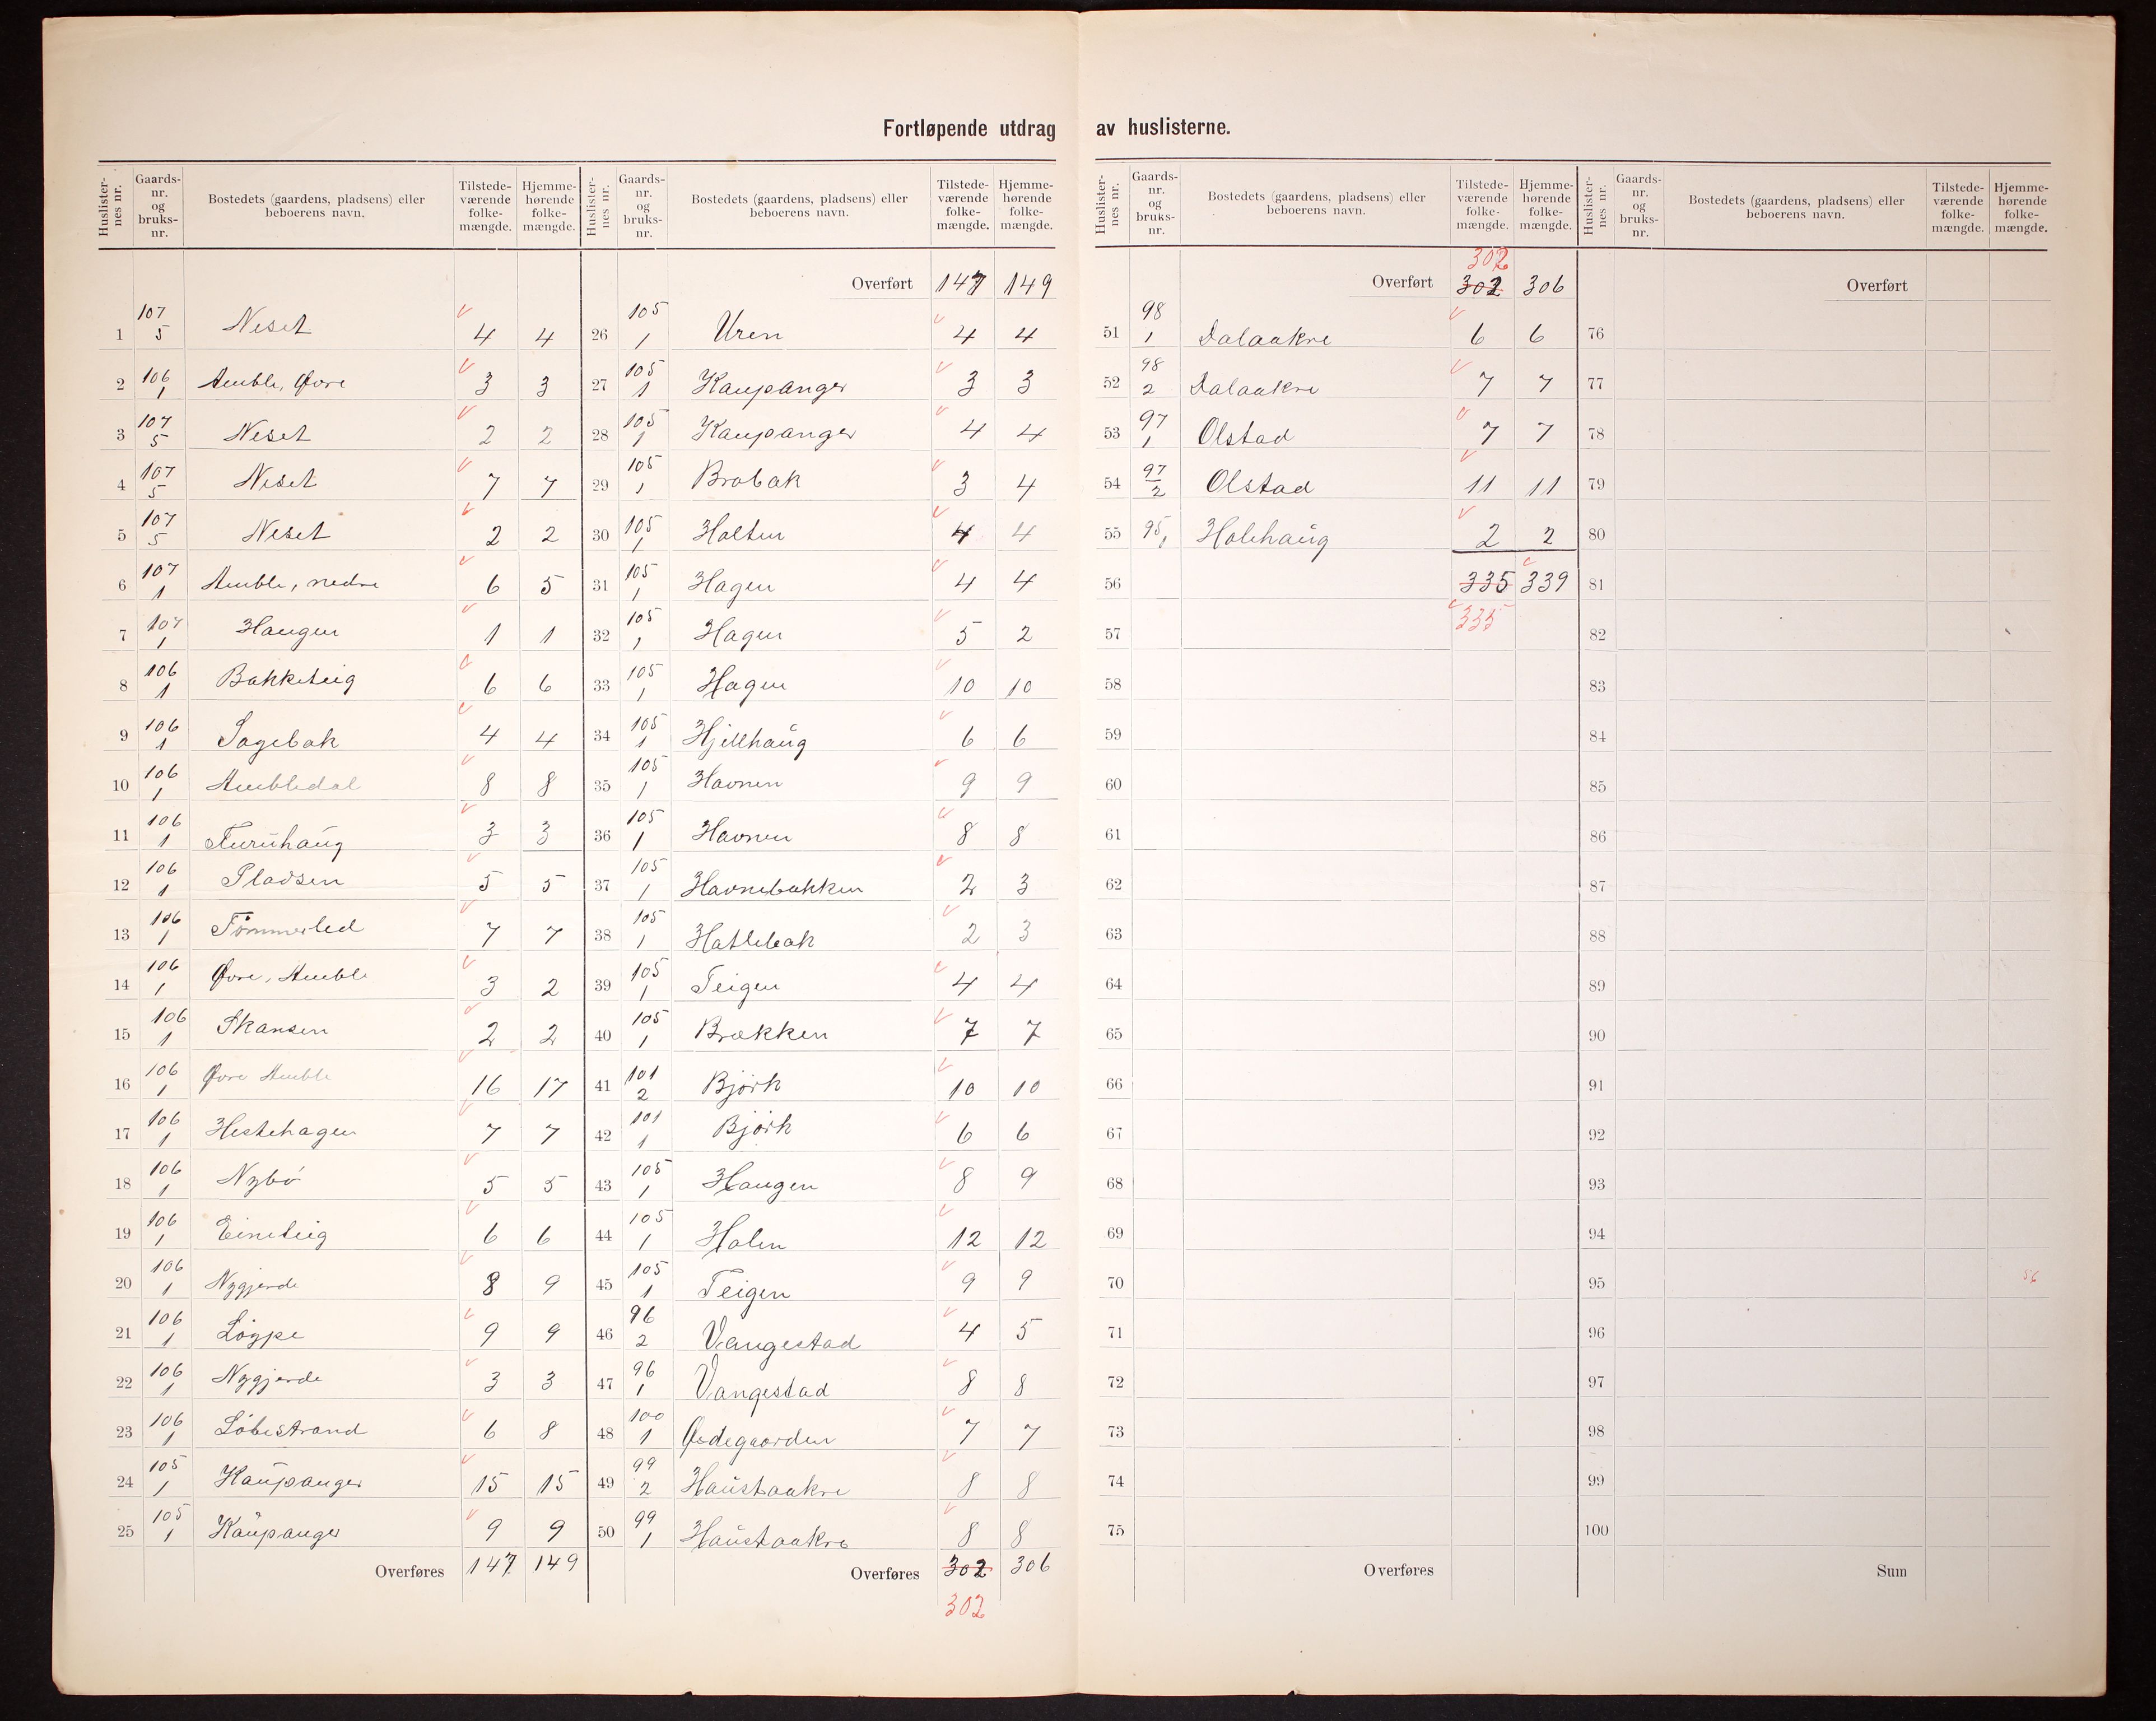 Fortløpende utdrag av huslisterne.
Huslisternes nr. Gaards-nr. og bruks-nr. Bostedets (gaardens, pladsens) eller beboerens navn. Tilstedeværende folkemængde. Hjemmehørende folkemængde.
1 107/5 Neset 4 4
2 106/1 Amble, Øvre 3 3
3 107/5 Neset 2 2
4 107/5 Neset 7 7
5 107/5 Neset 2 2
6 107/1 Amble, nedre 6 5
7 107/1 Haugen 1 1
8 106/1 Bakketeig 6 6
9 106/1 Sagebak 4 4
10 106/1 Ambledal 8 8
11 106/1 Furuhaug 3 3
12 106/1 Pladsen 5 5
13 106/1 Tømmerled 7 7
14 106/1 Øvre, Amble 3 2
15 106/1 Skansen 2 2
16 106/1 Øvre Amble 16 17
17 106/1 Hestehagen 7 7
18 106/1 Nybø 5 5
19 106/1 Eineteig 6 6
20 106/1 Nygjerde 8 9
21 106/1 Løype 9 9
22 106/1 Nygjerde 3 3
23 106/1 Løbestrand 6 8
24 105/1 Kaupanger 15 15
25 105/1 Kaupanger 9 9
Overføres 147 149
Huslisternes nr. Gaards-nr. og bruks-nr. Bostedets (gaardens, pladsens) eller beboerens navn. Tilstedeværende folkemængde. Hjemmehørende folkemængde.
Overført 147 149
26 105/1 Uren 4 4
27 105/1 Kaupanger 3 3
28 105/1 Kaupanger 4 4
29 105/1 Brobak 3 4
30 105/1 Holten 4 4
31 105/1 Hagen 4 4
32 105/1 Hagen 5 2
33 105/1 Hagen 10 10
34 105/1 Hjellhaug 6 6
35 105/1 Havnen 9 9
36 105/1 Havnen 8 8
37 105/1 Havnebakken 2 3
38 105/1 Hatlebak 2 3
39 105/1 Teigen 4 4
40 105/1 Brækken 7 7
41 101/2 Bjørk 10 10
42 101/1 Bjørk 6 6
43 105/1 Haugen 8 9
44 105/1 Holen 12 12
45 105/1 Teigen 9 9
46 96/2 Vangestad 4 5
47 96/1 Vangestad 8 8
48 100/1 Ødegaarden 7 7
49 99/2 Haustaakre 8 8
50 99/1 Haustaakre 8 8
Overføres 302 306
302
Huslisternes nr. Gaards-nr. og bruks-nr. Bostedets (gaardens, pladsens) eller beboerens navn. Tilstedeværende folkemængde. Hjemmehørende folkemængde.
302
Overført 302 306
51 98/1 Dalaakre 6 6
52 98/2 Dalaakre 7 7
53 97/1 Olstad 7 7
54 97/2 Olstad 11 11
55 95/1 Holehaug 2 2
56 335 339
335
57
58
59
60
61
62
63
64
65
66
67
68
69
70
71
72
73
74
75
Overføres
Huslisternes nr. Gaards-nr. og bruks-nr. Bostedets (gaardens, pladsens) eller beboerens navn. Tilstedeværende folkemængde. Hjemmehørende folkemængde.
Overført
76
77
78
79
80
81
82
83
84
85
86
87
88
89
90
91
92
93
94
95 56
96
97
98
99
100
Sum